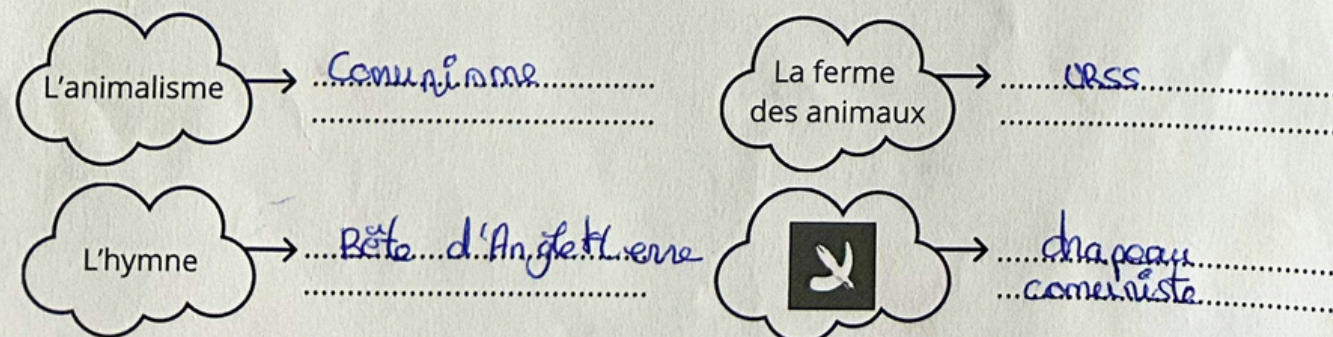 L'animalisme
Comunisme
La ferme
des animaux
URSS
L'hymne
Bête d'Angletterre
drapeau
comuniste